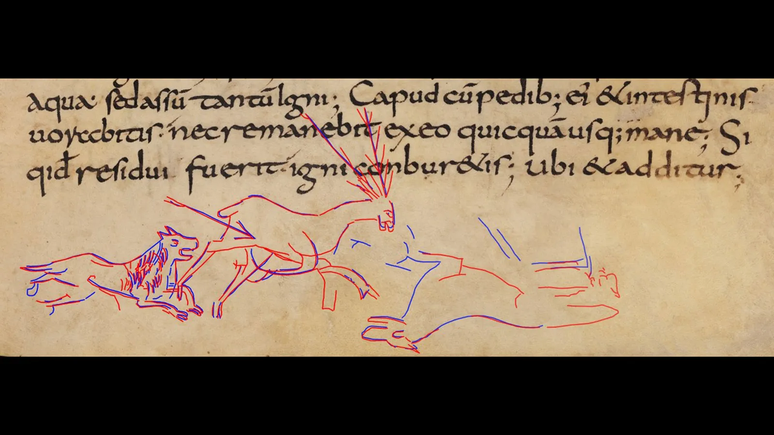 aqua· sed assū tantū igni; Capud cū pedib; ei' & intestinis
uorabitis· nec remanebit ex eo quicquā usq; mane; Si
qid residui fuerit· igni conbur&is; Ubi & additur;